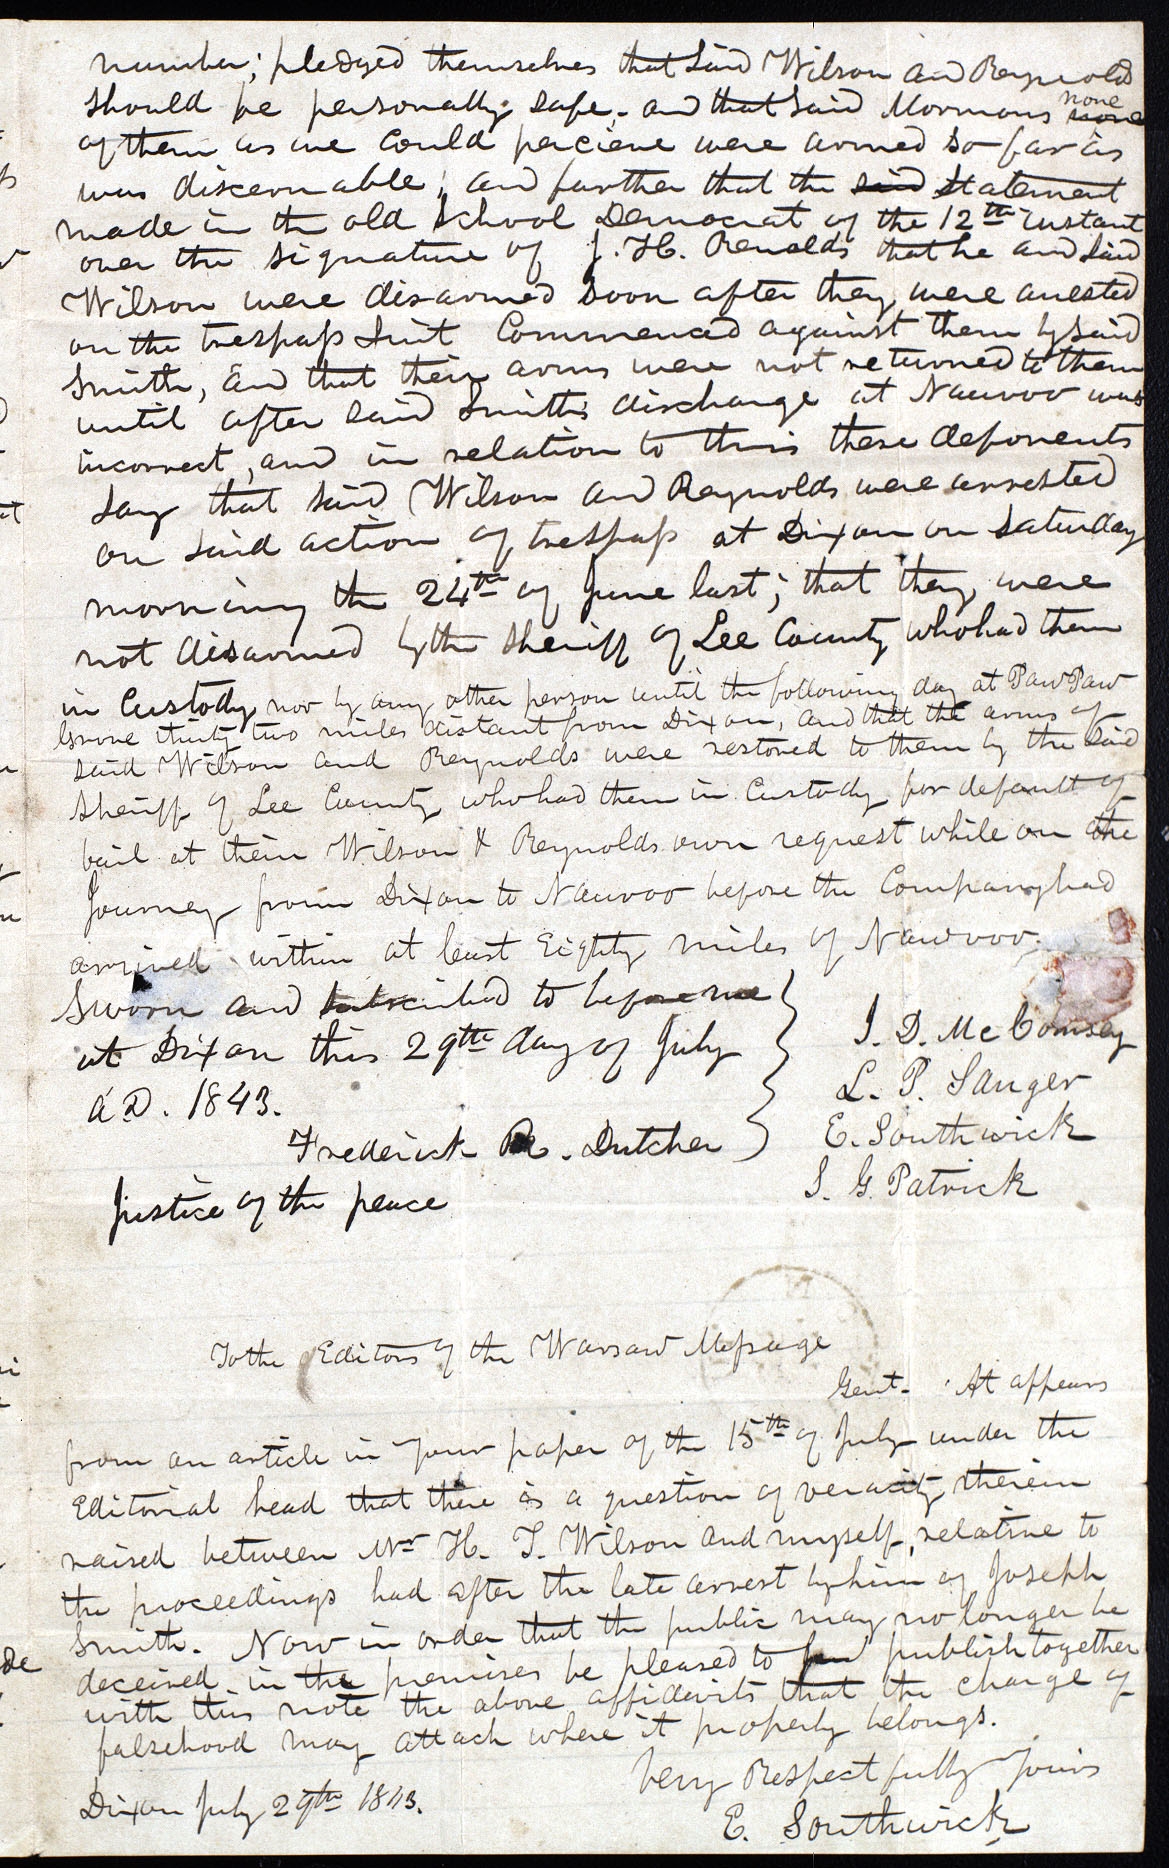 number; pledged themselves that said Wilson and Reynolds
should be personally safe. and that said Mormons none none
of them as we could percieve were armed so far as
was discernable; and further that the said statement
made in the old School Democrat of the 12th instant
over the signature of J. H. Renolds that he and said
Wilson were disarmed soon after they were arrested
on the trespass suit Commenced against them by said
Smith, and that their arms were not returned to them
until after said Smiths discharge at Nauvoo was
incorrect, and in relation to this these deponents
say that said Wilson and Reynolds were arrested
on said action of trespass at Dixon on Saturday
morning the 24th of June last; that they were
not disarmed by the Sheriff of Lee County who had them
in Custody nor by any other person until the following day at Paw Paw
Grove thirty two miles distant from Dixon, and that the arms of
said Wilson and Reynolds were restored to them by the said
Sheriff of Lee County who had them in Custody for default of
bail at them Wilson & Reynolds own request while on the
Journey from Dixon to Nauvoo before the Company had
arrived within at least Eighty miles of Nauvoo.
Sworn and subscribed to before me
at Dixon this 29th day of July
A.D. 1843.
Frederick R. Dutcher
Justice of the peace
J. D. McComsey
L. P. Sanger
E. Southwick
S. G. Patrick
To the Editors of the Warsaw Message
Gent. It appears
from an article in your paper of the 15th of July under the
Editorial head that there is a question of veracity therein
raised between Mr H. T. Wilson and myself, relative to
the proceedings had after the late arrest by him of Joseph
Smith. Now in order that the public may no longer be
deceived in the premises be pleased to publish together
with this note the above affidavits that the charge of
falsehood may attach where it properly belongs.
Very Respectfully Yours
Dixon July 29th 1843.
E. Southwick